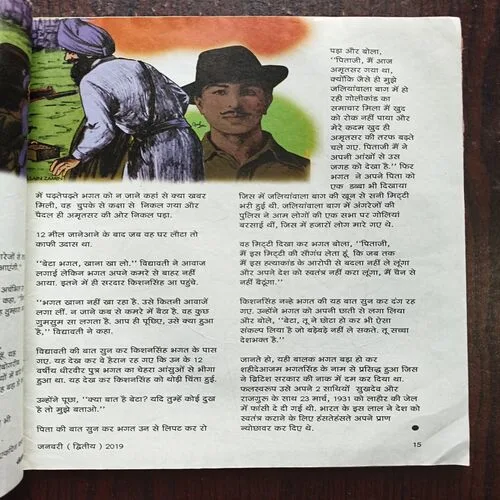 में पढ़तेपढ़ते भगत को न जाने कहां से क्या खबर
मिली, वह चुपके से कक्षा से निकल गया और
पैदल ही अमृतसर की ओर निकल पड़ा.
12 मील जानेआने के बाद जब वह घर लौटा तो
काफी उदास था.
"बेटा भगत, खाना खा लो." विद्यावती ने आवाज
लगाई लेकिन भगत अपने कमरे से बाहर नहीं
आया. इतने में ही सरदार किशनसिंह आ पहुंचे.
"भगत खाना नहीं खा रहा है. उसे कितनी आवाजें
लगा लीं. न जाने कब से कमरे में बैठा है. वह कुछ
गुमसुम सा लगता है. आप ही पूछिए, उसे क्या हुआ
है," विद्यावती ने कहा.
विद्यावती की बात सुन कर किशनसिंह भगत के पास
गए. यह देख कर वे हैरान रह गए कि उन के 12
वर्षीय धीरवीर पुत्र भगत का चेहरा आंसुओं से भीगा
हुआ था. यह देख कर किशनसिंह को थोड़ी चिंता हुई.
उन्होंने पूछा, "क्या बात है बेटा? यदि तुम्हें कोई दुख
है तो मुझे बताओ."
पिता की बात सुन कर भगत उन से लिपट कर रो
पड़ा और बोला,
"पिताजी, मैं आज
अमृतसर गया था,
क्योंकि जैसे ही मुझे
जलियांवाला बाग में हो
रही गोलीकांड का
समाचार मिला मैं खुद
को रोक नहीं पाया और
मेरे कदम खुद ही
अमृतसर की तरफ बढ़ते
चले गए. पिताजी मैं ने
अपनी आंखों से उस
जगह को देखा है." फिर
भगत ने अपने पिता को
एक डब्बा भी दिखाया
जिस में जलियांवाला बाग की खून से सनी मिट्टी
भरी हुई थी. जलियांवाला बाग में अंगरेजों की
पुलिस ने आम लोगों की एक सभा पर गोलियां
बरसाई थीं, जिस में हजारों लोग मारे गए थे.
वह मिट्टी दिखा कर भगत बोला, "पिताजी,
मैं इस मिट्टी की सौगंध लेता हूं कि जब तक
मैं इस हत्याकांड के आरोपी से बदला नहीं ले लूंगा
और अपने देश को स्वतंत्र नहीं करा लूंगा, मैं चैन से
नहीं बैठूंगा."
किशनसिंह नन्हे भगत की यह बात सुन कर दंग रह
गए. उन्होंने भगत को अपनी छाती से लगा लिया
और बोले, "बेटा, तू ने छोटा हो कर भी ऐसा
संकल्प लिया है जो बड़ेबड़े नहीं ले सकते. तू सच्चा
देशभक्त है."
जानते हो, यही बालक भगत बड़ा हो कर
शहीदेआजम भगतसिंह के नाम से प्रसिद्ध हुआ जिस
ने ब्रिटिश सरकार की नाक में दम कर दिया था.
फलस्वरूप उसे अपने 2 साथियों सुखदेव और
राजगुरू के साथ 23 मार्च, 1931 को लाहौर की जेल
में फांसी दे दी गई थी. भारत के इस लाल ने देश को
स्वतंत्र कराने के लिए हंसतेहंसते अपने प्राण
न्योछावर कर दिए थे.
जनवरी (द्वितीय) 2019
15